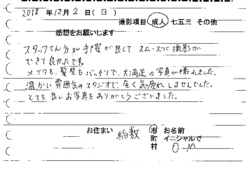 2018年12月2日(日)
撮影項目 成人 七五三 その他
感想をお願いします
スタッフさん方が手際が良くて、スムーズに撮影が
できて良かったです。
メイクも、髪型もバッチリで、大満足の写真が撮れました。
温かい雰囲気のスタジオで、なく気疲れしませんでした。
とても良いお写真をありがとうございました。
お住まい 稲敷 市 町 村
お名前 イニシャルで O・M